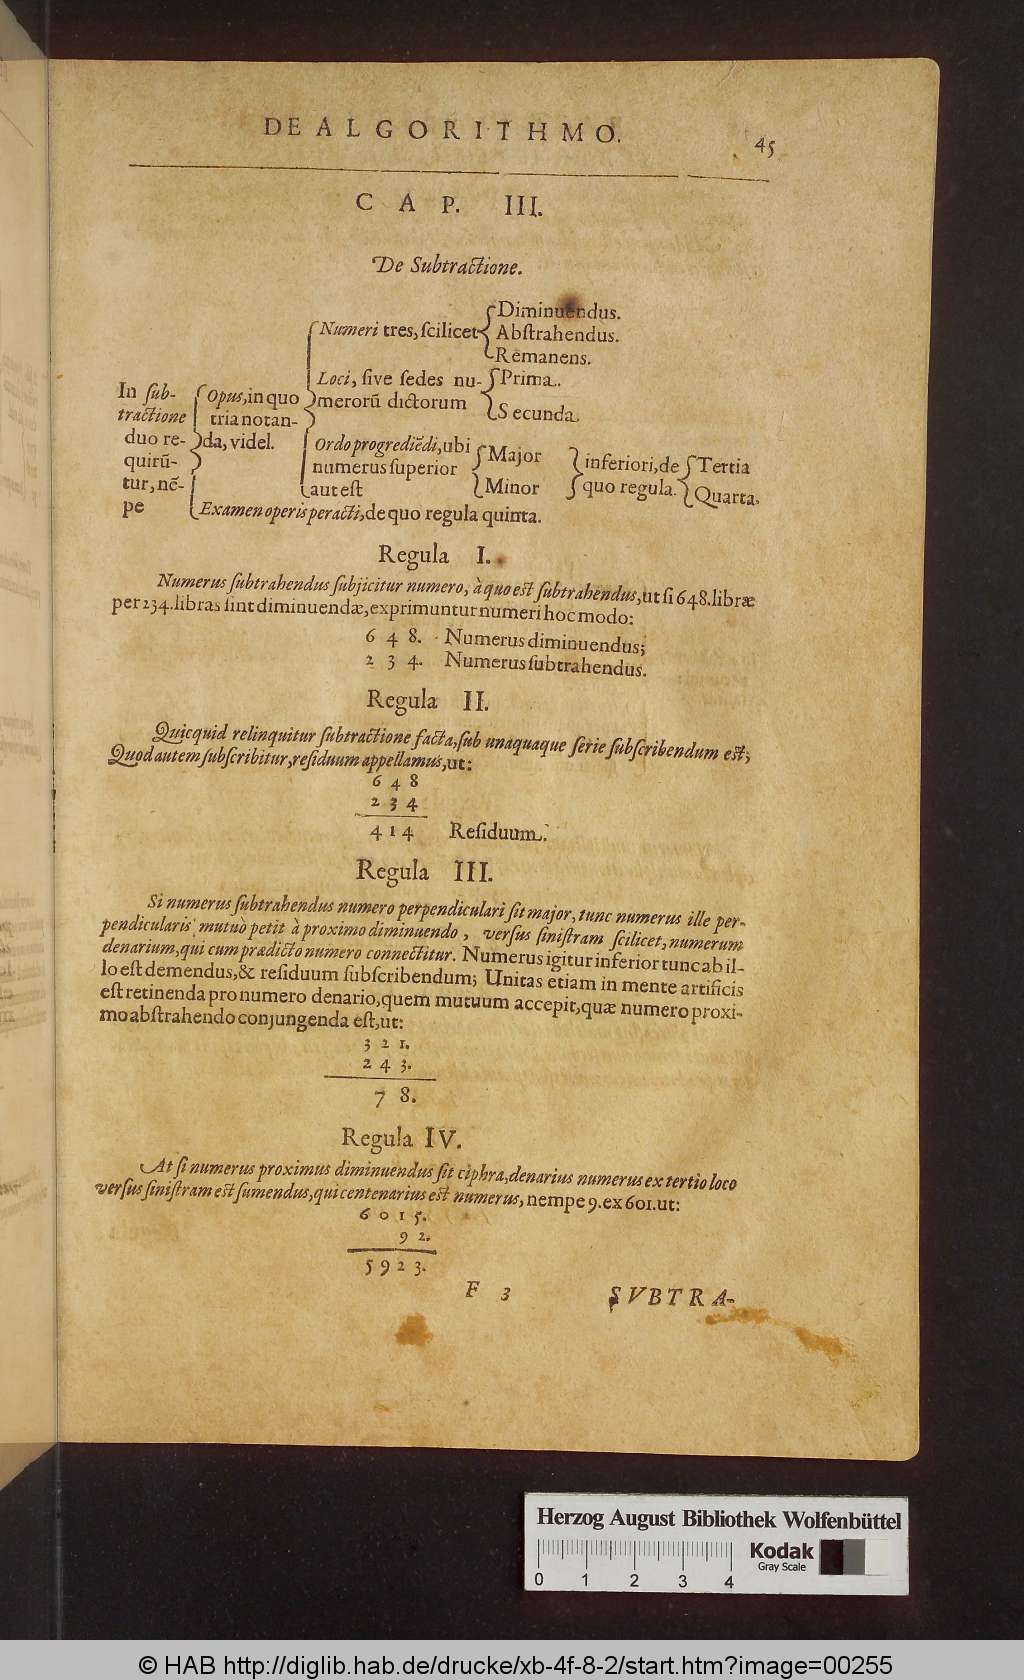 DE ALGORITHMO. 45
CAP. III.
De Subtractione.
In ſub-
tractione
duo re-
quirū-
tur, nē-
pe
Opus, in quo
tria notan-
da, videl.
Numeri tres, ſcilicet
Diminuendus.
Abſtrahendus.
Remanens.
Loci, ſive ſedes nu-
merorū dictorum
Prima.
Secunda.
Ordo progrediēdi, ubi
numerus ſuperior
aut eſt
Major
Minor
inferiori, de
quo regula.
Tertia
Quarta.
Examen operis peracti, de quo regula quinta.
Regula I.
Numerus ſubtrahendus ſubjicitur numero, à quo eſt ſubtrahendus, ut ſi 648. libræ
per 234. libras ſint diminuendæ, exprimuntur numeri hoc modo:
6 4 8. Numerus diminuendus;
2 3 4. Numerus ſubtrahendus.
Regula II.
Quicquid relinquitur ſubtractione facta, ſub unaquaque ſerie ſubſcribendum eſt;
Quod autem ſubſcribitur, reſiduum appellamus, ut:
6 4 8
2 3 4
4 1 4 Reſiduum.
Regula III.
Si numerus ſubtrahendus numero perpendiculari ſit major, tunc numerus ille per-
pendicularis mutuò petit à proximo diminuendo, verſus ſiniſtram ſcilicet, numerum
denarium, qui cum prædicto numero connectitur. Numerus igitur inferior tunc ab il-
lo eſt demendus, & reſiduum ſubſcribendum; Unitas etiam in mente artificis
eſt retinenda pro numero denario, quem mutuum accepit, quæ numero proxi-
mo abſtrahendo conjungenda eſt, ut:
3 2 1.
2 4 3.
7 8.
Regula IV.
At ſi numerus proximus diminuendus ſit ciphra, denarius numerus ex tertio loco
verſus ſiniſtram eſt ſumendus, qui centenarius eſt numerus, nempe 9. ex 601. ut:
6 0 1 5.
9 2.
5 9 2 3.
F 3 SVBTRA-
Herzog August Bibliothek Wolfenbüttel
0 1 2 3 4
Kodak
Gray Scale
© HAB http://diglib.hab.de/drucke/xb-4f-8-2/start.htm?image=00255